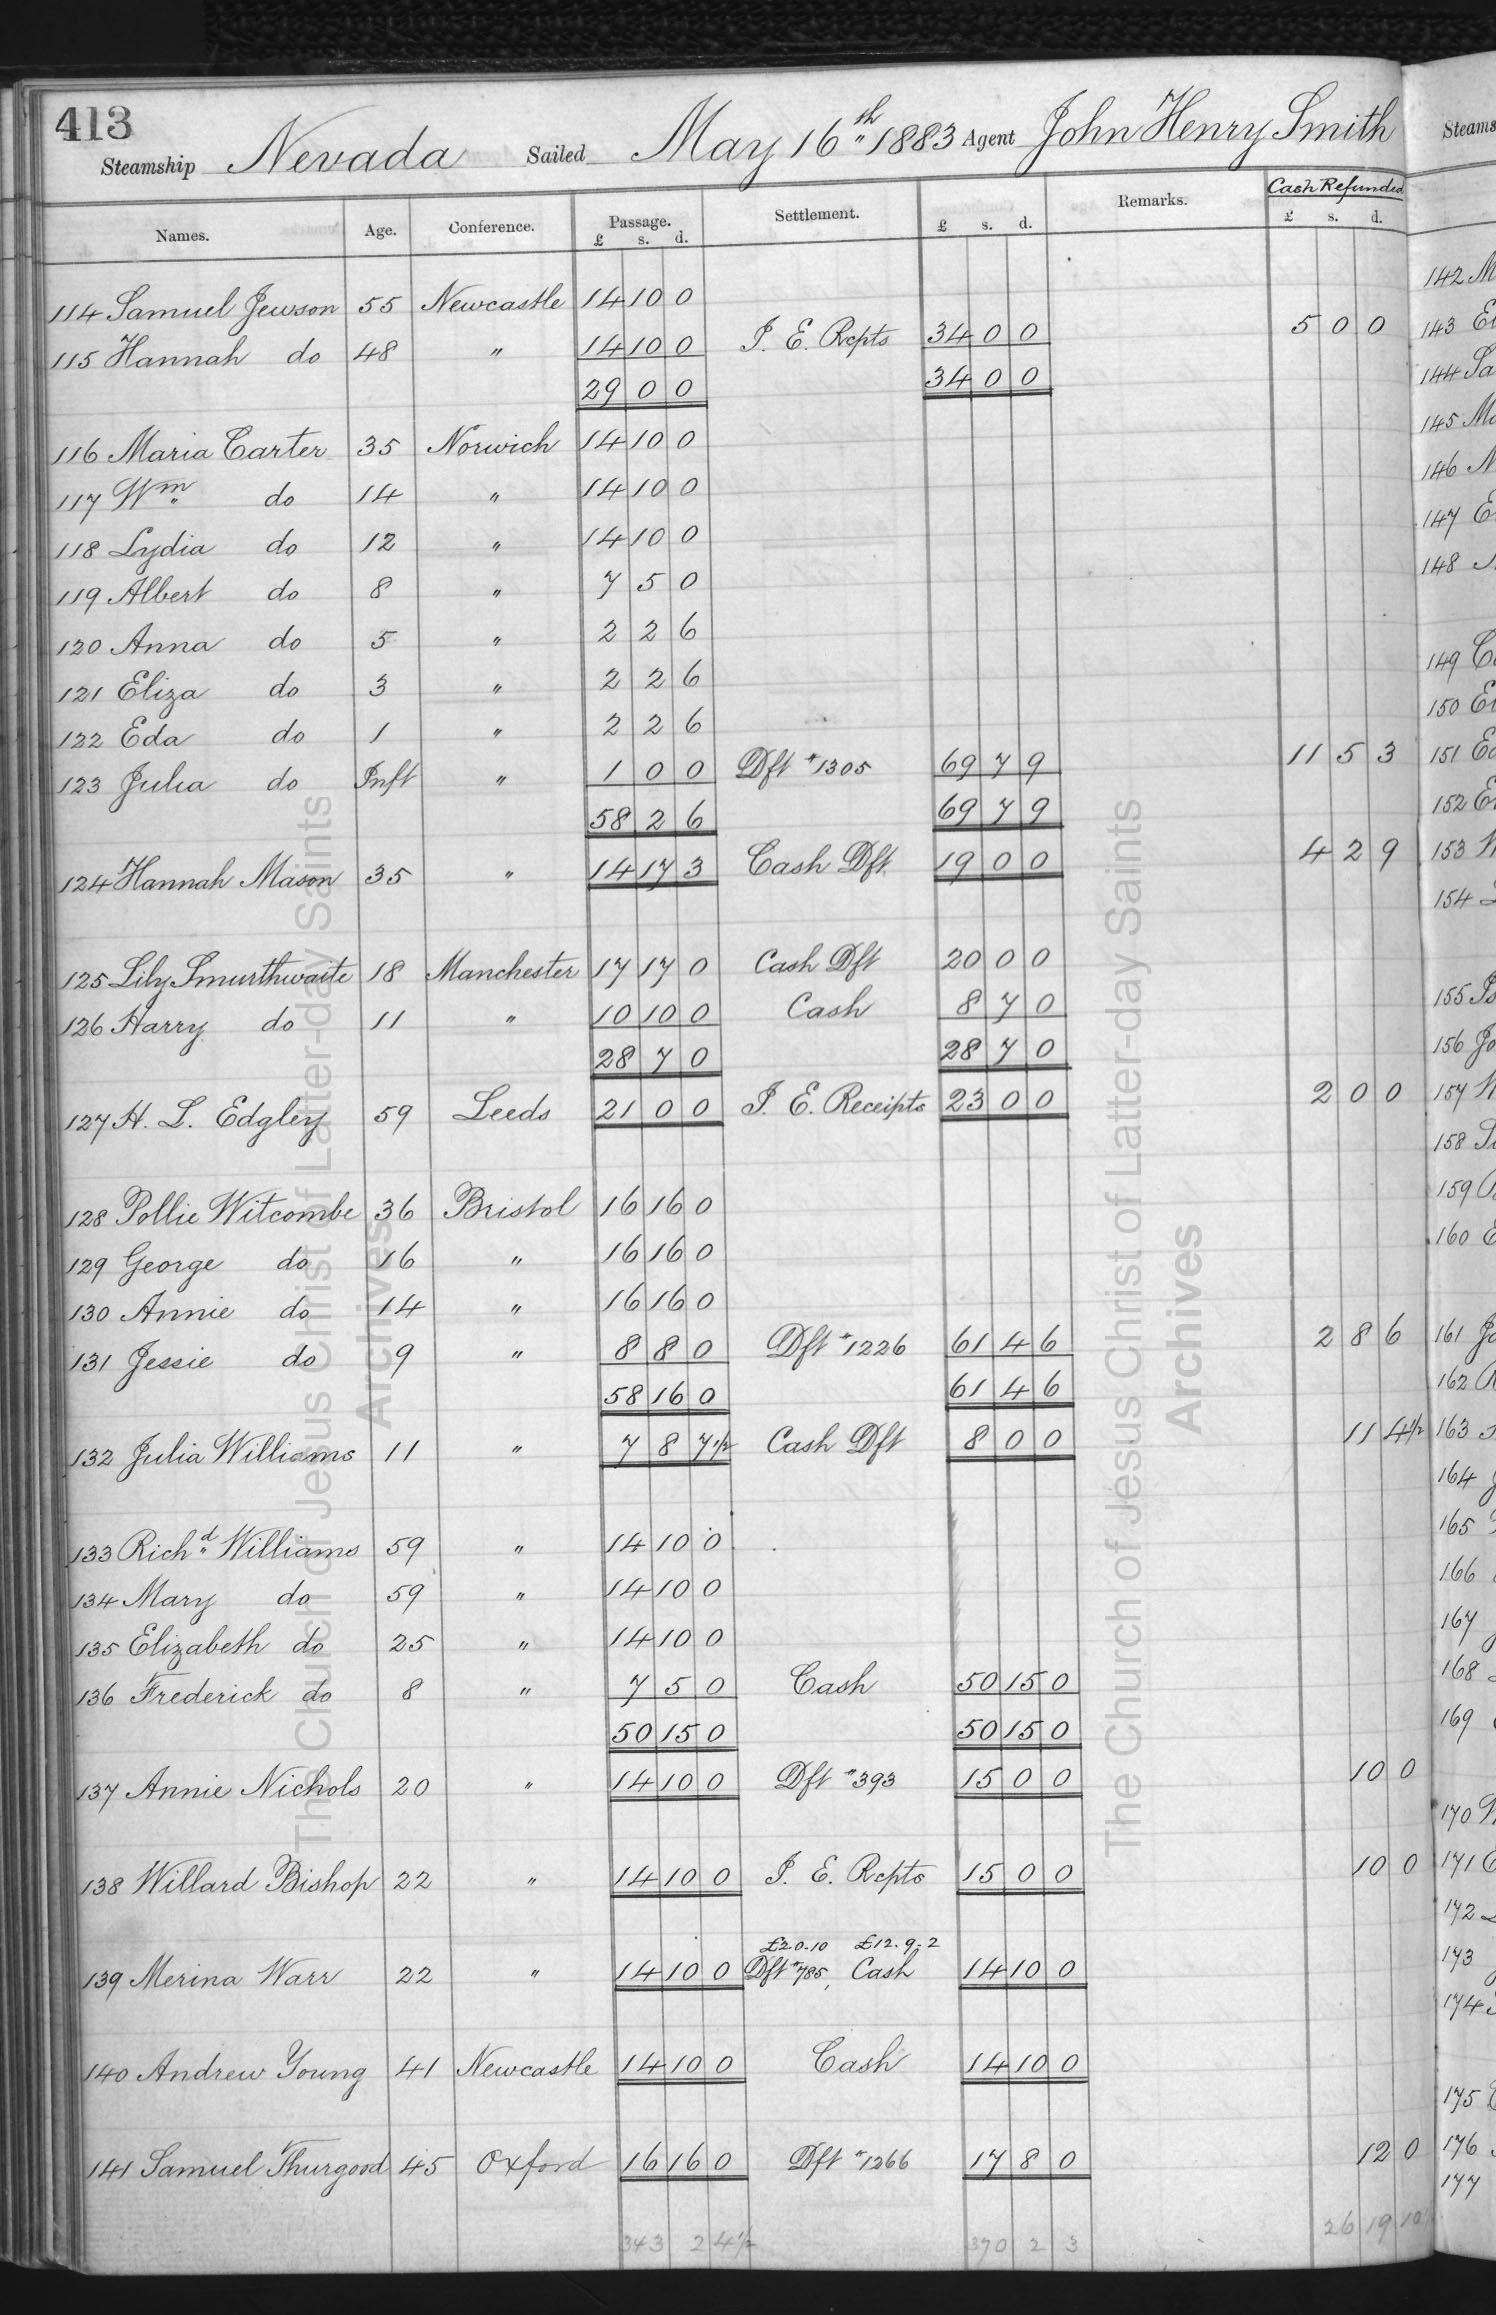 413
Steamship Nevada Sailed May 16th 1883 Agent John Henry Smith
Cash Refunded
Names. Age. Conference. Passage. Settlement. Remarks.
£ s. d. £ s. d. £ s. d.
114 Samuel Jewson 55 Newcastle 14 10 0
115 Hannah do 48 " 14 10 0 I. E. Rcpts 34 0 0 5 0 0
29 0 0 34 0 0
116 Maria Carter 35 Norwich 14 10 0
117 Wm do 14 " 14 10 0
118 Lydia do 12 " 14 10 0
119 Albert do 8 " 7 5 0
120 Anna do 5 " 2 2 6
121 Eliza do 3 " 2 2 6
122 Eda do 1 " 2 2 6
123 Julia do Inft " 1 0 0 Dft #1305 69 7 9 11 5 3
58 2 6 69 7 9
124 Hannah Mason 35 " 14 17 3 Cash Dft 19 0 0 4 2 9
125 Lily Smurthwaite 18 Manchester 17 17 0 Cash Dft 20 0 0
126 Harry do 11 " 10 10 0 Cash 8 7 0
28 7 0 28 7 0
127 H. L. Edgley 59 Leeds 21 0 0 I. E. Receipts 23 0 0 2 0 0
128 Pollie Witcombe 36 Bristol 16 16 0
129 George do 16 " 16 16 0
130 Annie do 14 " 16 16 0
131 Jessie do 9 " 8 8 0 Dft #1226 61 4 6 2 8 6
58 16 0 61 4 6
132 Julia Williams 11 " 7 8 7½ Cash Dft 8 0 0 11 4½
133 Richd Williams 59 " 14 10 0
134 Mary do 59 " 14 10 0
135 Elizabeth do 25 " 14 10 0
136 Frederick do 8 " 7 5 0 Cash 50 15 0
50 15 0 50 15 0
137 Annie Nichols 20 " 14 10 0 Dft #393 15 0 0 10 0
138 Willard Bishop 22 " 14 10 0 I. E. Rcpts 15 0 0 10 0
£2.0.10 £12.9.2
139 Merina Warr 22 " 14 10 0 Dft #785, Cash 14 10 0
140 Andrew Young 41 Newcastle 14 10 0 Cash 14 10 0
141 Samuel Thurgood 45 Oxford 16 16 0 Dft #1266 17 8 0 12 0
343 2 4½ 370 2 3 26 19 10
The Church of Jesus Christ of Latter-day Saints
Archives
The Church of Jesus Christ of Latter-day Saints
Archives
142
143
144
145
146
147
148
149
150
151
152
153
154
155
156
157
158
159
160
161
162
163
164
165
166
167
168
169
170
171
172
173
174
175
176
177